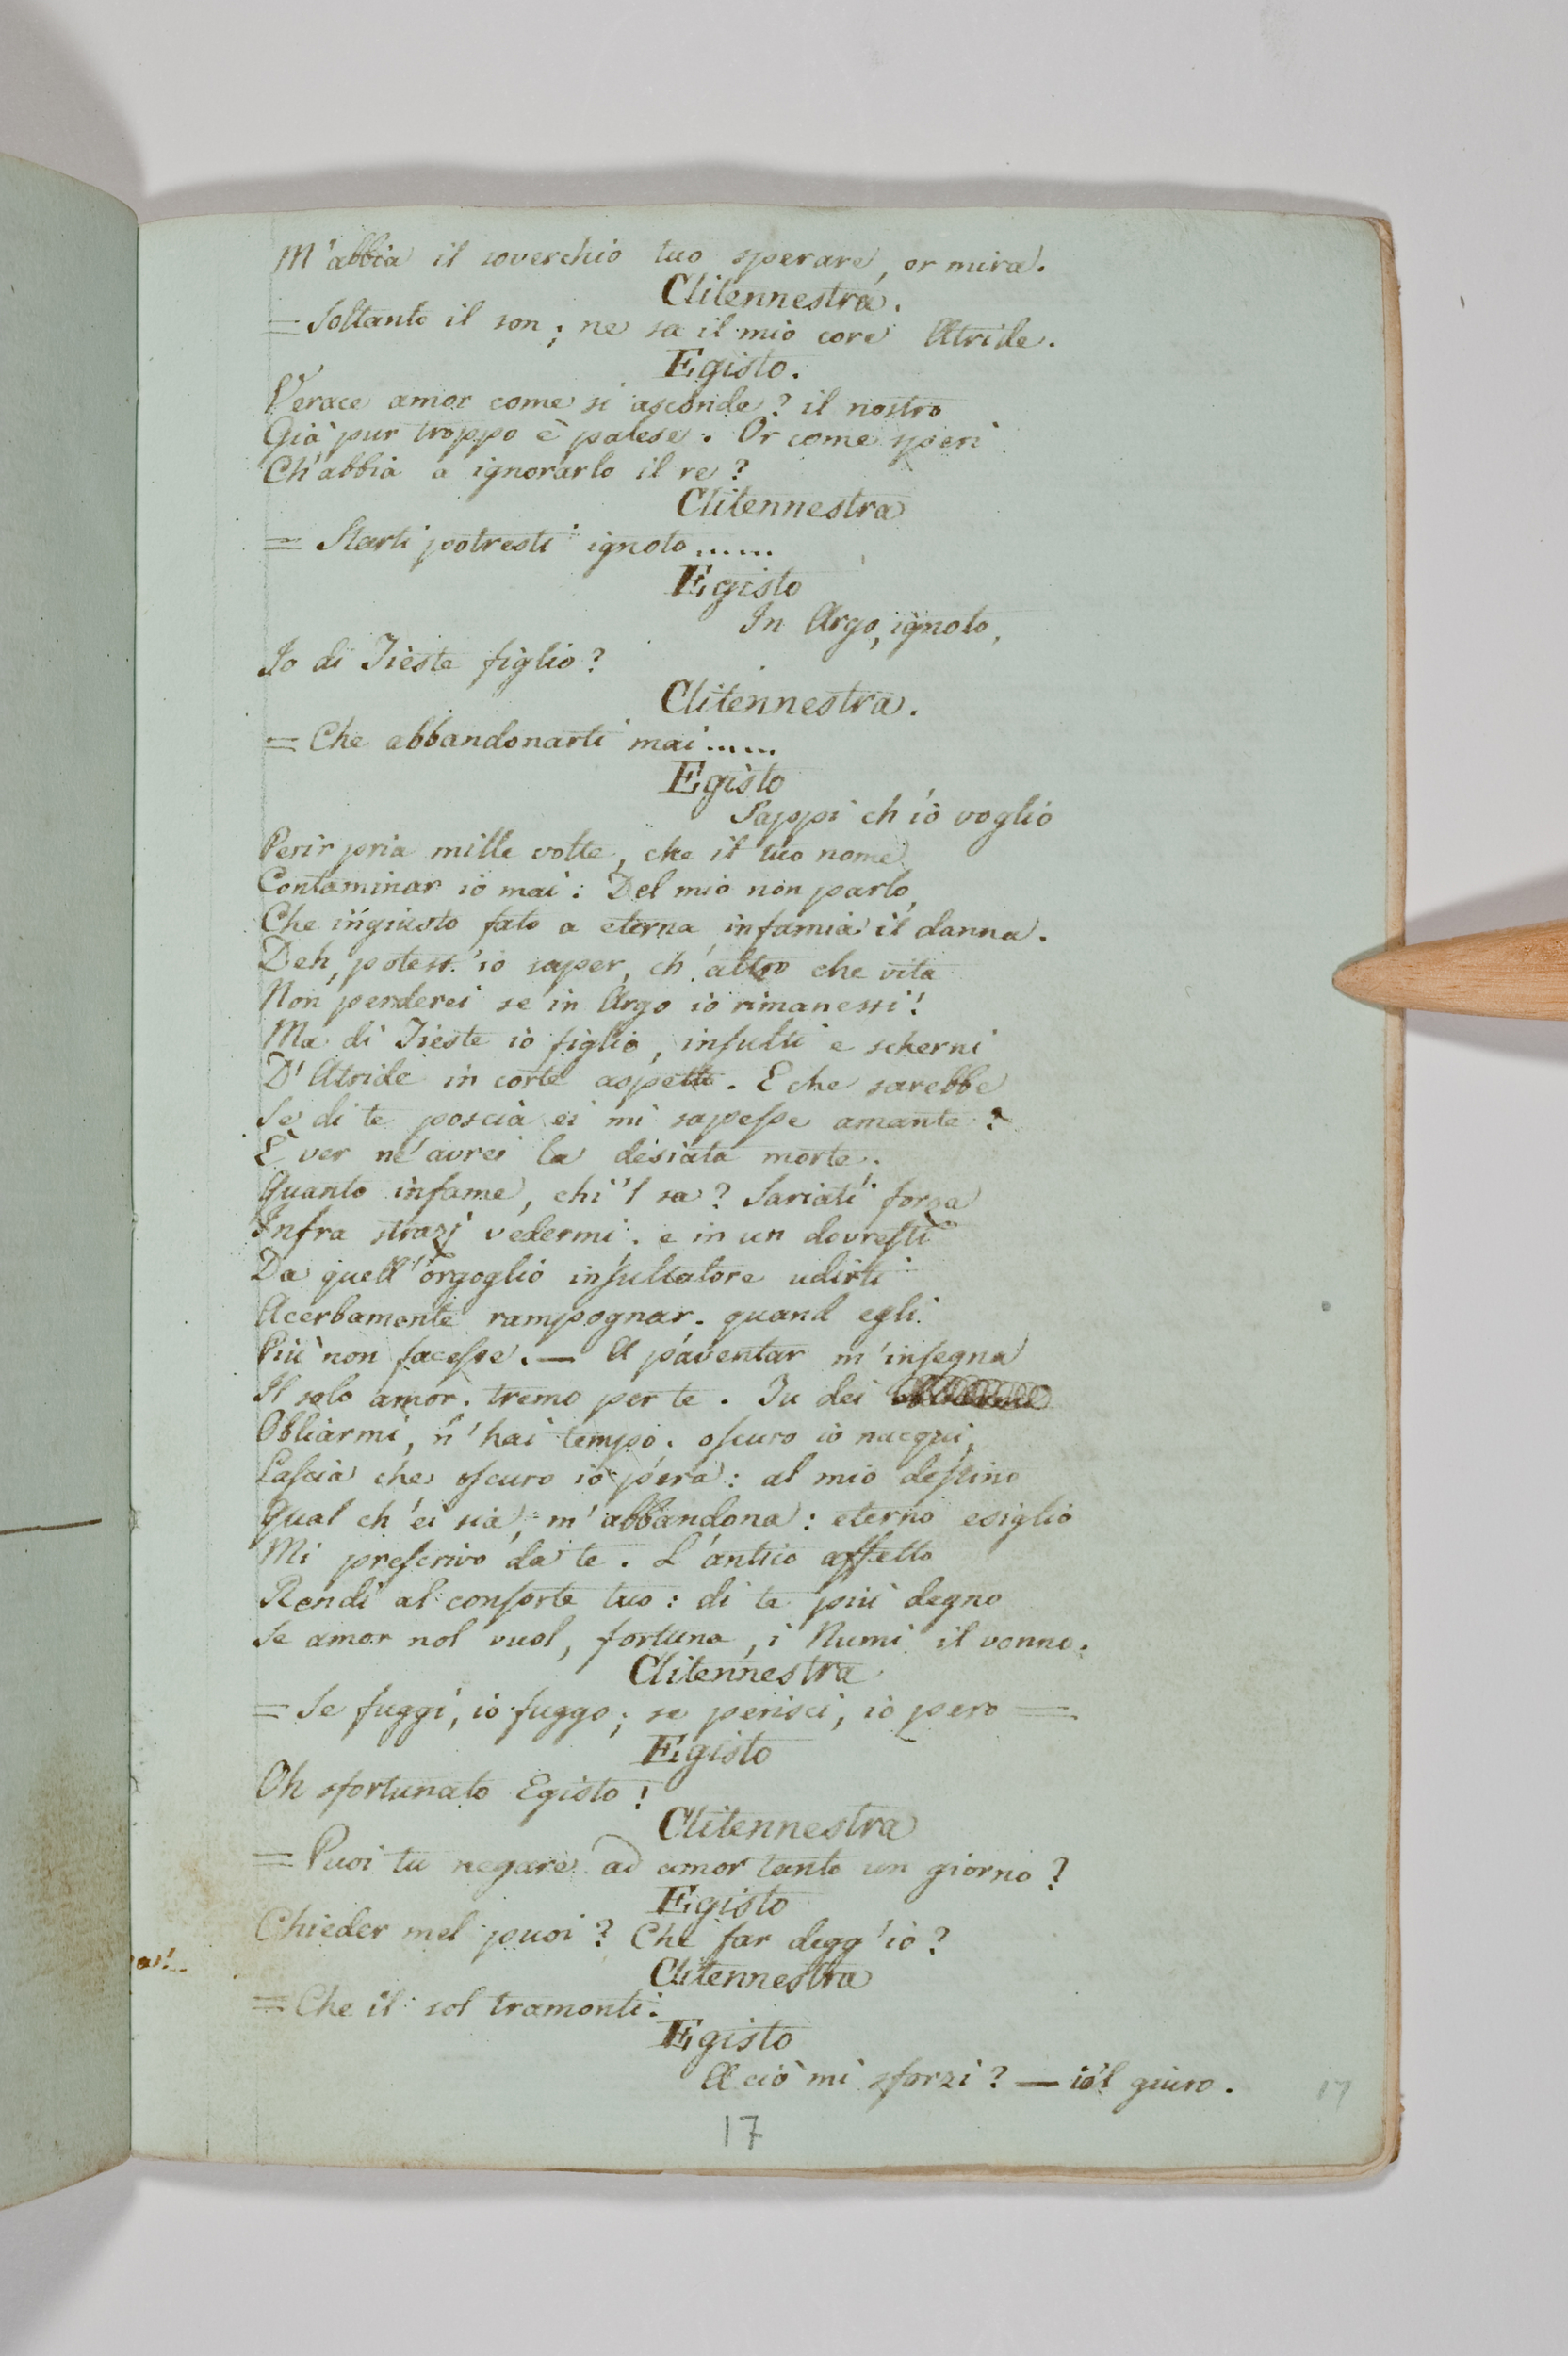 M'abbia il soverchio tuo sperare, or mira.
Clitennestra.
= Soltanto il son; ne sa il mio core Atride.
Egisto.
Verace amor come si asconde? il nostro
Già pur troppo è palese. Or come speri
Ch'abbia a ignorarlo il re?
Clitennestra
= Starti potresti ignoto......
Egisto
In Argo, ignoto,
Io di Tieste figlio?
Clitennestra.
= Che abbandonarti mai......
Egisto
Sappi ch'io voglio
Perir pria mille volte, che il tuo nome
Contaminar io mai: Del mio non parlo,
Che ingiusto fato a eterna infamia il danna.
Deh, potess'io saper, ch'altro che vita
Non perderei se in Argo io rimanessi!
Ma di Tieste io figlio, insulti e scherni
D'Atride in corte aspetto. E che sarebbe
Se di te poscia ei mi sapesse amante?
È ver ne avrei la desiata morte;
Quanto infame, chi 'l sa? Sariati forza
Infra strazj vedermi. e in un dovresti
Da quell'orgoglio insultatore udirti
Acerbamente rampognar. quand egli
Più non facesse. — A paventar m'insegna
Il solo amor. tremo per te. Tu dei
Obliarmi, n'hai tempo. oscuro io nacqui,
Lascia che oscuro io pera: al mio destino
Qual ch'ei sia, m'abbandona: eterno esiglio
Mi prescrivo da te. L'antico affetto
Rendi al consorte tuo: di te più degno
Se amor nol vuol, fortuna, i Numi il vonno.
Clitennestra
= Se fuggi, io fuggo; se perisci, io pero =
Egisto
Oh sfortunato Egisto!
Clitennestra
= Puoi tu negare ad amor tanto un giorno?
Egisto
Chieder mel puoi? Che far degg'io?
Clitennestra
= Che il sol tramonti.
Egisto
A ciò mi sforzi? — io'l giuro.
17
17